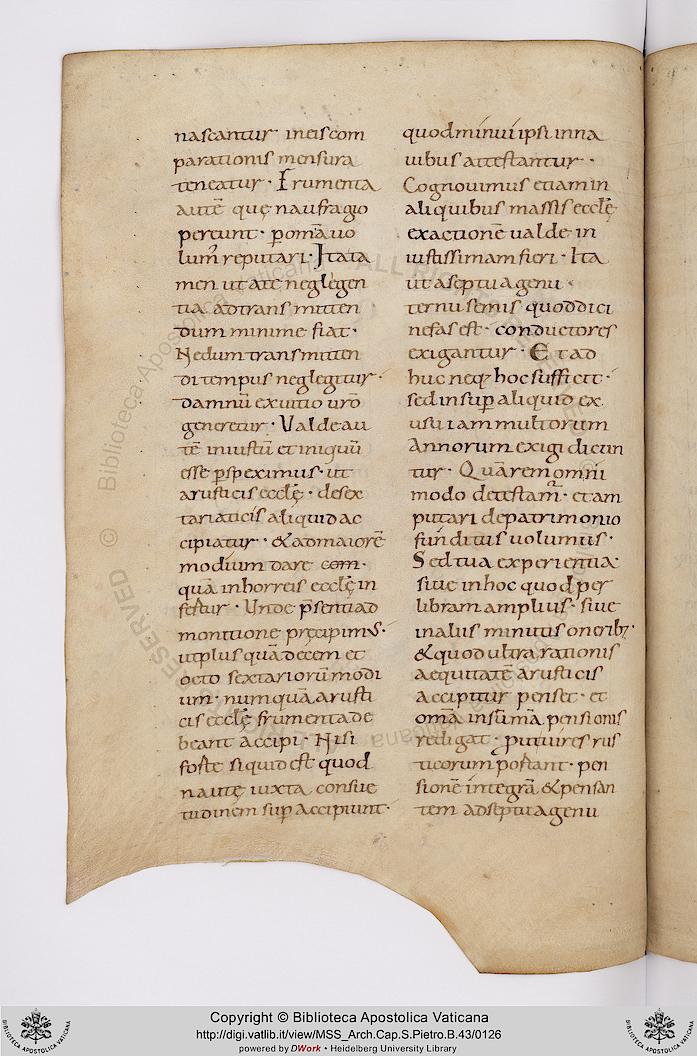 nascantur · in eis com
parationis mensura
teneatur · Frumenta
autē quę naufragio
pereunt · p omā uo
lum̄ reputari · Ita ta
men ut a te neglegen
tia ad trans mitten
dum minime fiat ·
Ne dum trans mitten
di tempus neglegitur ·
damnū ex uitio urō
generetur · Valde au
tē iniustū et iniquū
esse pspeximus · ut
a rusticis ecclę · de sex
tariaticis aliquid ac
cipiatur · & ad maiorē
modium dare com ·
quā in horreis ecclę in
fertur · Unde p̄senti ad
monitione pręcipimus ·
ut plus quā decem et
octo sextariorū modi
um · numquā a rusti
cis ecclę frumenta de
beant accipi · Nisi
forte si quid est quod
nautę iuxta consue
tudinem sup accipiunt ·
quod minui ipsi in na
uibus attestantur ·
Cognouimus etiam in
aliquibus massis ecclę
exactionē ualde in
iustissimam fieri · Ita
ut a septuagenu ·
ternu semis quod dici
nefas est · conductores
exigantur · Et ad
huc neq; hoc sufficit ·
sed insup aliquid ex
usu iam multorum
Annorum exigi dicun
tur · Quā rem omni
modo detestam̄ · et am
putari de patrimonio
funditus uolumus ·
Sed tua experientia
siue in hoc quod per
libram amplius · siue
in aliis minutis onerib; ·
& quod ultra rationis
aequitatē a rusticis
accipitur penset · et
omā in sūmā pensionis
redigat · p ut uires rus
ticorum portant · pen
sionē integrā & pensan
tem ad septuagenu
Copyright © Biblioteca Apostolica Vaticana
http://digi.vatlib.it/view/MSS_Arch.Cap.S.Pietro.B.43/0126
powered by DWork · Heidelberg University Library